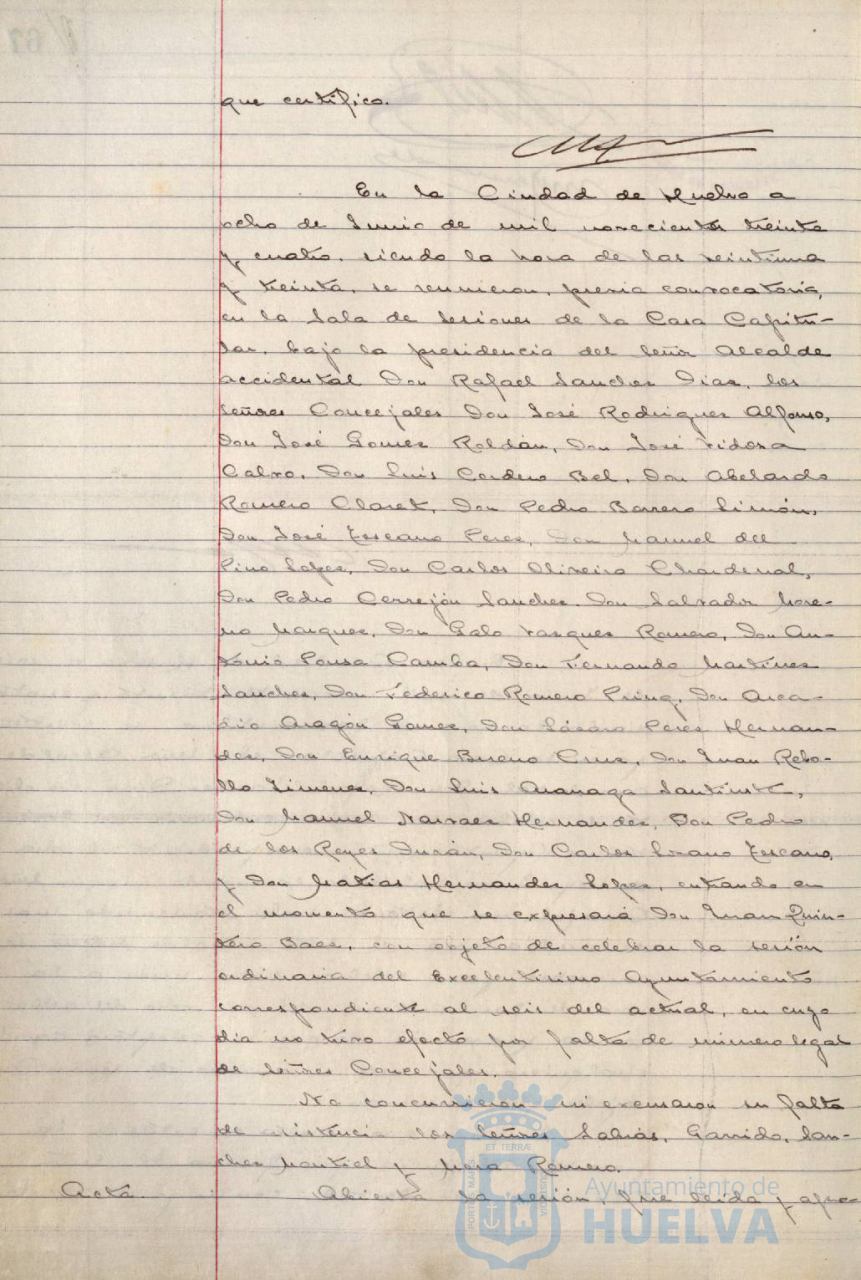 que certifico.
En la Ciudad de Huelva a
ocho de Junio de mil novecientos treinta
y cuatro, siendo la hora de las veintiuna
y treinta, se reunieron, previa convocatoria,
en la Sala de Sesiones de la Casa Capitu-
lar, bajo la presidencia del Señor Alcalde
accidental Don Rafael Sanchez Diaz, los
señores Concejales Don José Rodriguez Alfonso,
Don José Gomez Roldán, Don José Vidosa
Calvo, Don Luis Cordero Bel, Don Abelardo
Romero Claret, Don Pedro Borrero Limón,
Don José Lescano Perez, Don Manuel del
Pino Lopez, Don Carlos Oliveira Chardenal,
Don Pedro Cerrejón Sanchez, Don Salvador More-
no Marquez, Don Galo Vazquez Romero, Don An-
tonio Pousa Camba, Don Fernando Martinez
Sanchez, Don Federico Romero Pring, Don Arca-
dio Aragón Gomez, Don Lázaro Perez Hernan-
dez, Don Enrique Bueno Cruz, Don Juan Rebo-
llo Jimenez, Don Luis Aranaga
Don Manuel Narvaez Hernandez, Don Pedro
de los Reyes Durán, Don Carlos Lozano Lescano,
y Don Matias Hernandez Lopez, entrando en
el momento que se expresará Don Juan Quin-
tero Baez, con objeto de celebrar la sesión
ordinaria del Excelentisimo Ayuntamiento
correspondiente al seis del actual, en cuyo
dia no tuvo efecto por falta de número legal
de señores Concejales.
No concurrieron ni excusaron su falta
de asistencia los señores Sabrás, Garrido, San-
chez Montiel y Mora Romero.
Acta. Abierta la sesión, fue leida y apro-
PORTUS MARIS ET TERRÆ CUSTODIA
Ayuntamiento de
HUELVA